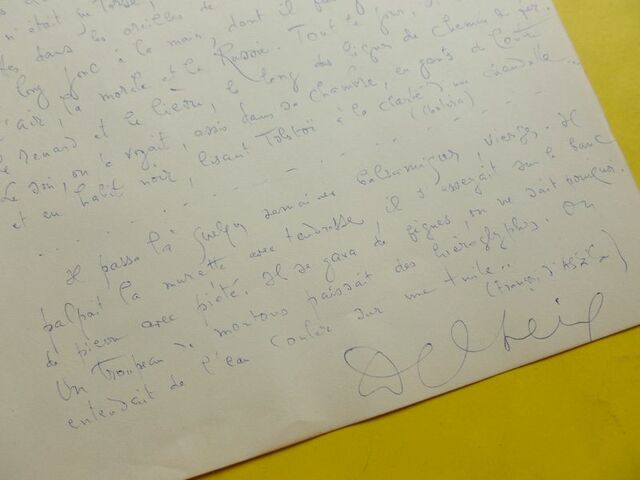 n'était
dans les oreilles de
long jonc à la main, dont il
l'air, la morale et la Russie. Tout le jour,
Renard et le lièvre, le long des lignes de chemin de fer.
Le soir, on le voyait, assis dans sa chambre, en gants de
et en habit noir, lisant Tolstoï à la clarté d'une chandelle..
Il passa là quelques semaines balsamiques, vierges. Il
palpait la murette avec tendresse, il s'asseyait sur le banc
de pierre avec piété. Il se gava de figues, on ne sait pourquoi.
Un troupeau de moutons paissait des hiéroglyphes. On
entendait de l'eau couler sur une tuile..
(François d'Assise)
Delteil